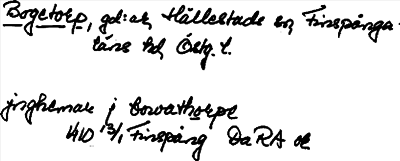 Bogetorp, gd: ak Hällestads sn, Finspånga-
läns hd, Östg. l.
jnghemar j bowathorpe
1410 13/1 Finspång DaRA or